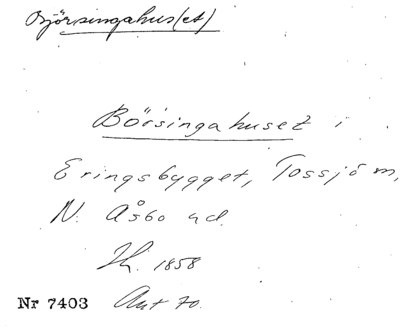 Björsingahus(et)
Börsingahuset i
Eringsbygget, Tossjö m,
N. Åsbo hd.
Jh. 1858
Nr 7403 Ant 70.